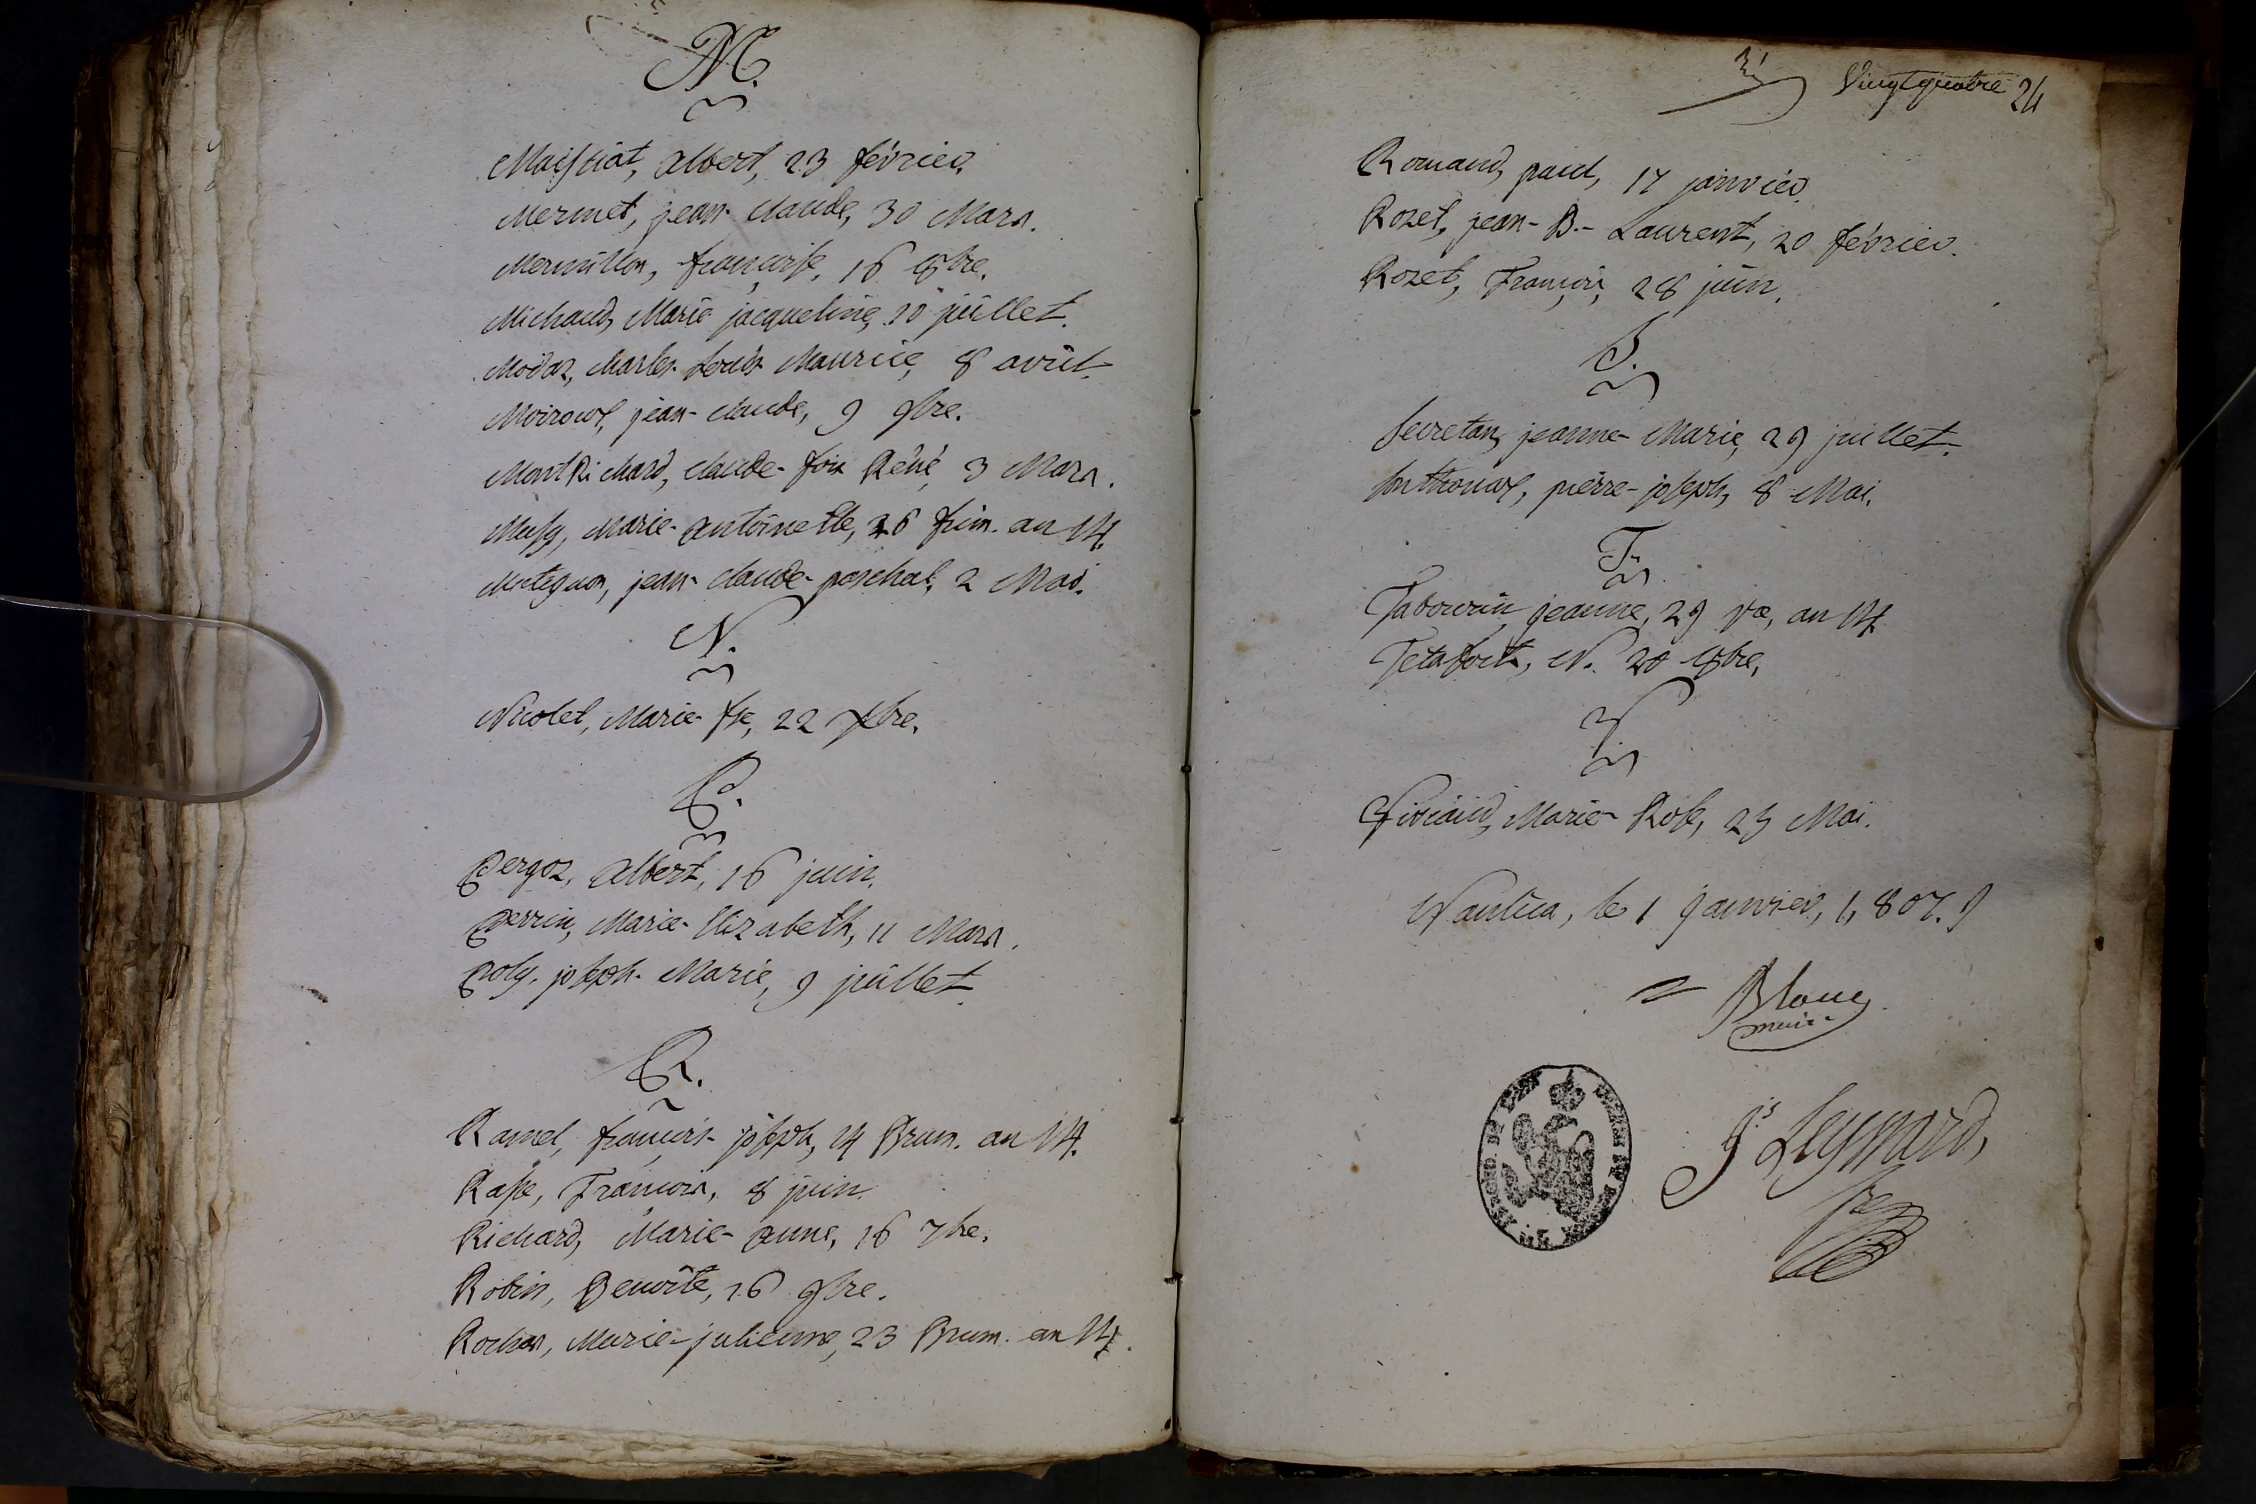 M.
Maissiat, albert, 23 février.
Mermet, jean-claude, 30 Mars.
Mermillon, françoise, 16 8bre.
Michaud, Marie jacqueline, 10 juillet.
Modaz, charles-Louis-Maurice, 8 avril.
Moiroux, jean-claude, 9 9bre.
MontRichard, claude-fois Réné, 3 Mars.
Mussy, Marie-antoinette, 26 frim. an 14.
jean-claude-paschal, 2 Mai.
N.
Nicolet, Marie-fse, 22 Xbre.
P.
Pergoz, albert, 16 juin.
Perrin, Marie-Elizabeth, 11 Mars.
Poly, joseph-Marie, 9 juillet.
R.
Ramel, françois-joseph, 14 Brum. an 14.
Rasse, François, 8 juin
Richard, Marie-anne, 16 7bre.
Robin, Benoîte, 26 9bre.
Rochas, Marie-julienne, 23 Brum. an 14.
Vingtquatre 24
Romand, paul, 17 janvier.
Rozet, jean-B.-Laurent, 20 février.
Rozet, François, 28 juin.
S.
Secretan, jeanne-Marie, 29 juillet.
Sonthonax, pierre-joseph, 8 Mai.
T.
Tabourin, jeanne, 29 Vre, an 14
Tetafort, N. 20 8bre.
V.
Marie-Rose, 23 Mai.
Nantua, le 1 janvier, 1,807.
Blanc
maire